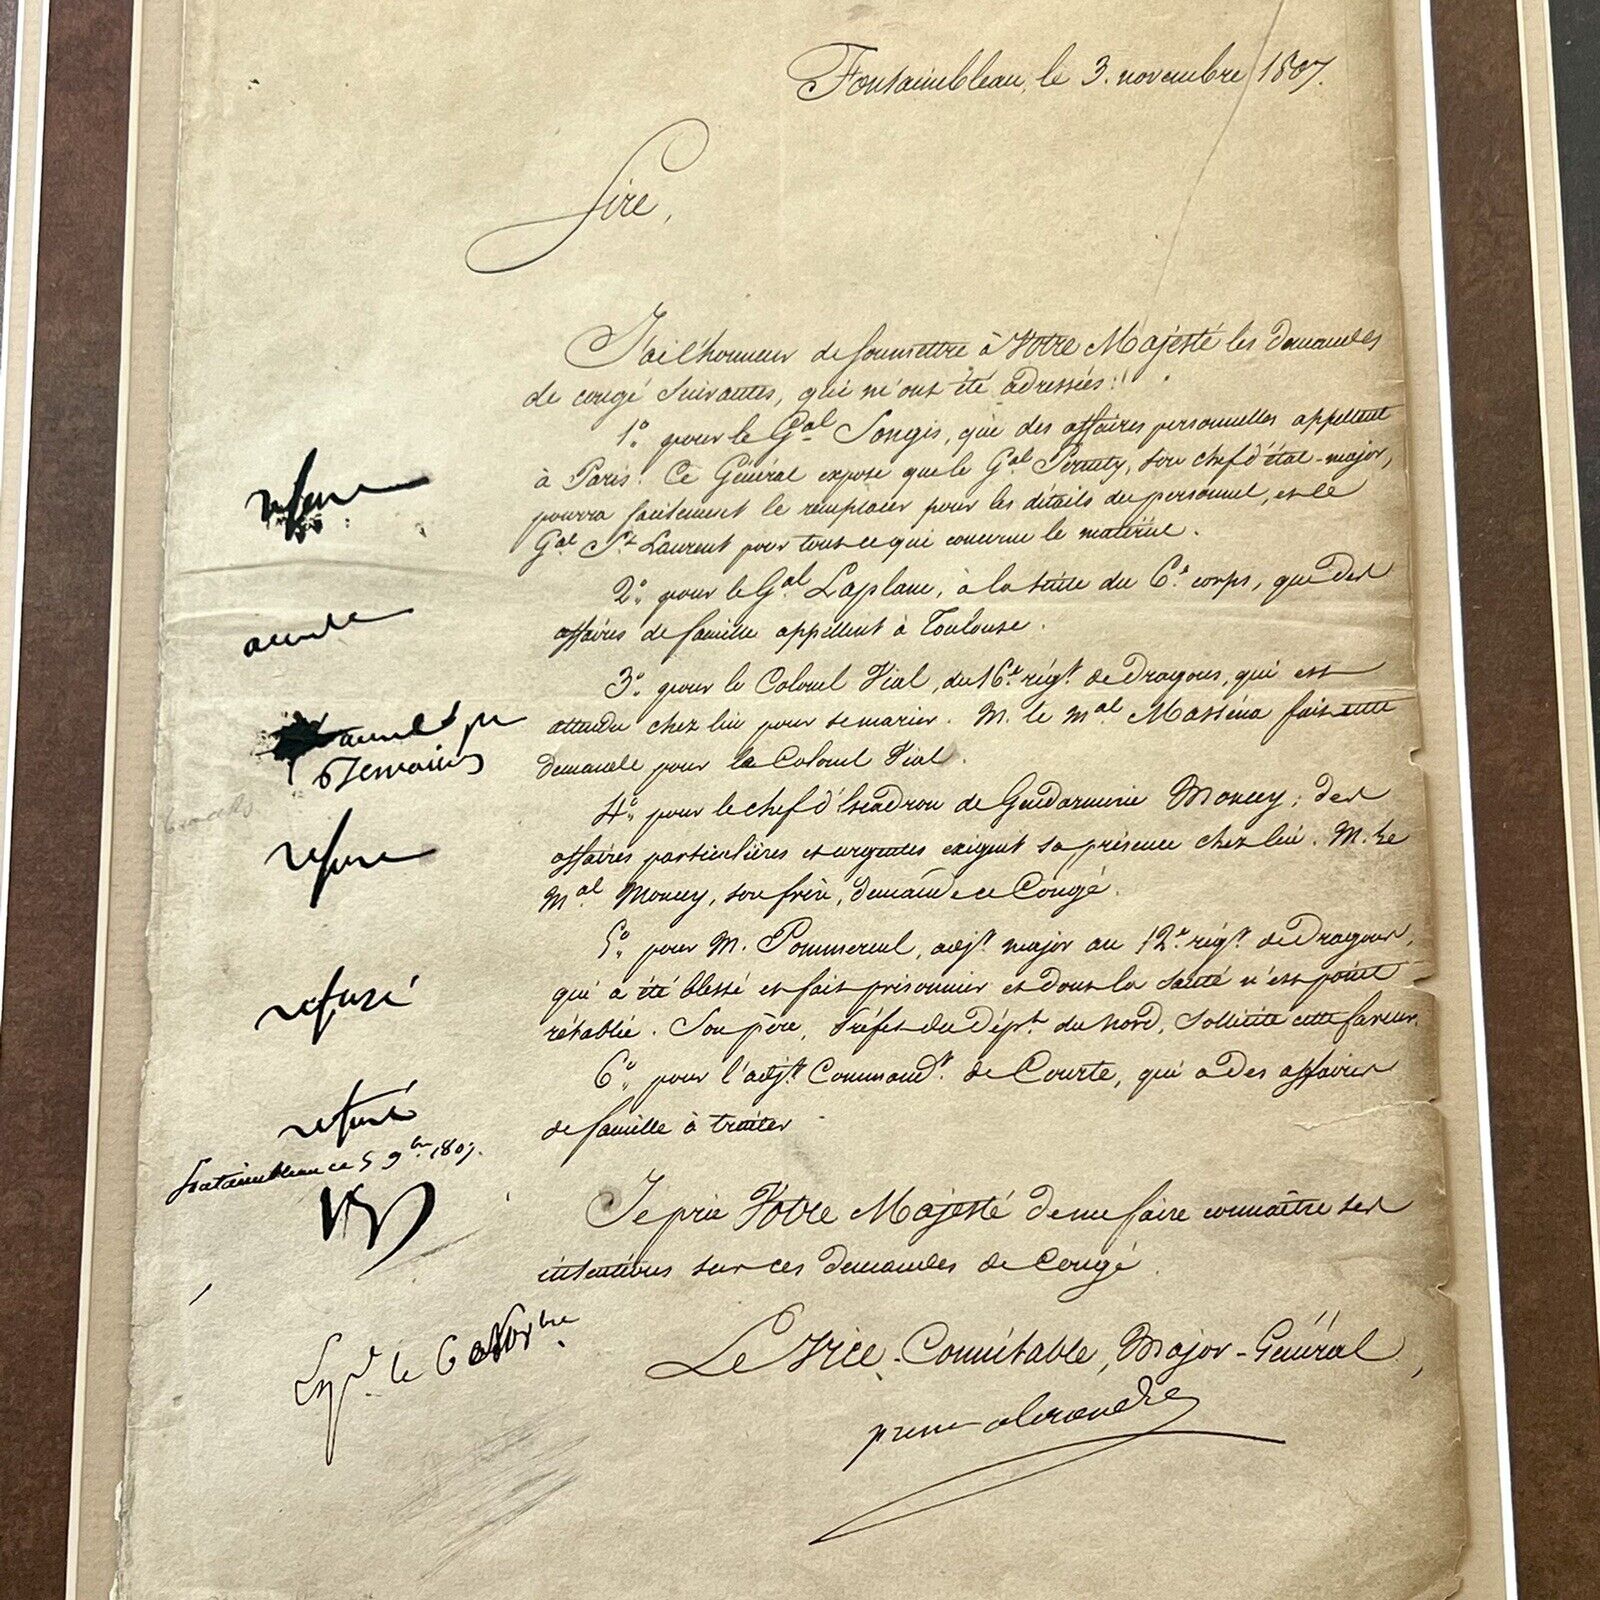 Fontainebleau, le 3. novembre 1807.
Sire,
J'ai l'honneur de soumettre à Votre Majesté les demandes
de congé suivantes, qui m'ont été adressées:
1º pour le Gal Songis, que des affaires personnelles appellent
à Paris. Ce Général expose que le Gal Pernety, son chef d'état-major,
refusé
pourra facilement le remplacer pour les détails du personnel, et le
Gal St Laurent pour tout ce qui concerne le matériel.
2º pour le Gal Laplane, à la suite du 6e corps, que des
accordé
affaires de famille appellent à Toulouse.
3º pour le Colonel Vial, du 16e régt de Dragons, qui est
attendu chez lui pour se marier. M. le Mal Masséna fait cette
accordé pr
6 semaines
demande pour le Colonel Vial.
4º pour le chef d'Escadron de Gendarmerie Moncey; des
affaires particulières et urgentes exigent sa présence chez lui. M. le
refusé
Mal Moncey, son frère, demande ce Congé.
5º pour M. Pommereul, adjt major au 12e régt de Dragons,
qui a été blessé et fait prisonnier et dont la santé n'est point
refusé
rétablie. Son père, Préfet du Dépt du Nord, sollicite cette faveur.
6º pour l'adjt Commandt de Courte, qui a des affaires
de famille à traiter
refusé
Fontainebleau ce 5 9bre 1807.
Je prie Votre Majesté de me faire connaître ses
intentions sur ces demandes de Congé.
Le Vice-Connétable, Major-Général,
Expd le 6 Novbre
prince alexandre